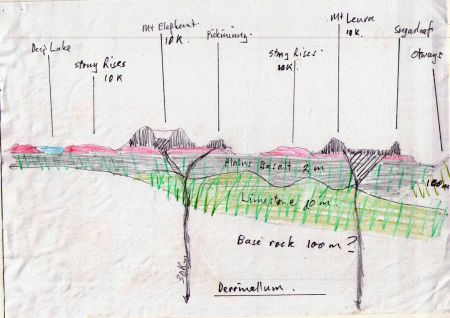 Deep Lake
Stony Rises
10 K
Mt Elephant.
10 K.
Pikininny.
Stony Rises.
10 K.
Mt Leura
10 K.
Sugarloaf
Otways
Plains Basalt 2 m
100 m
Limestone 10 m.
Base rock 100 m ?
30 Km
Derrinallum.